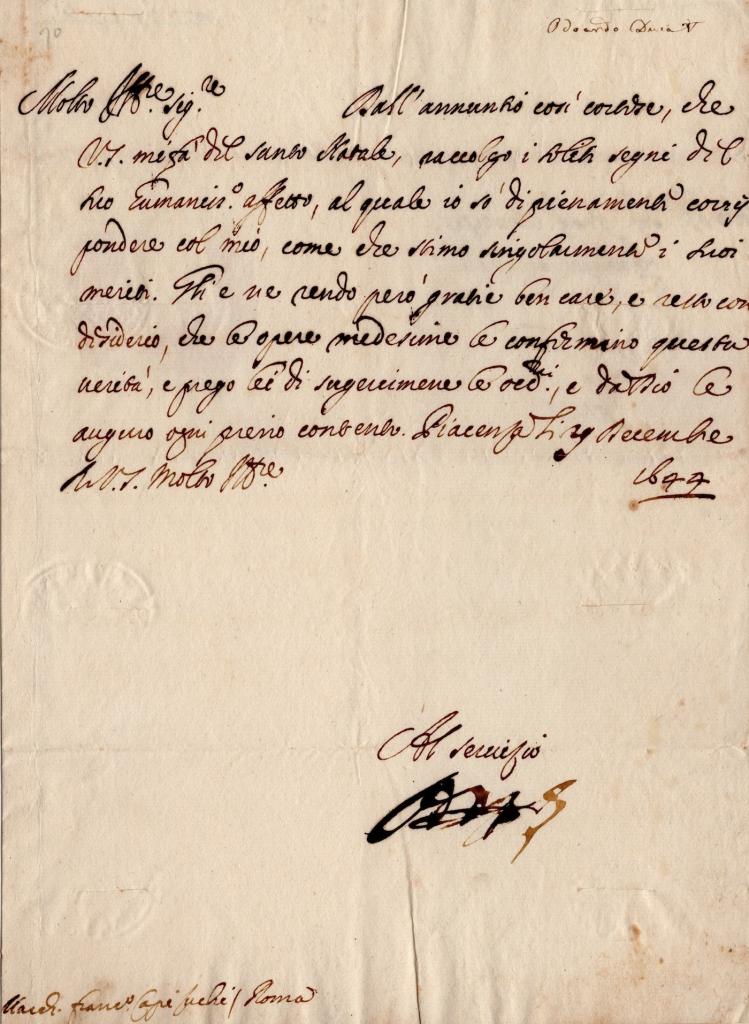 Odoardo Duca V
70
Molto Ill.re Sig.re Dall'annuntio così cortese, che
V.S. mi fà del santo Natale, raccolgo i soliti segni del
suo humaniss.o affetto, al quale io sò di pienamente corris
pondere col mio, come che stimo singolarmente i suoi
meriti. Gli e ne rendo però gratie ben care, e resto con
desiderio, che le opere medesime le confermino questa
verità, e prego lei di sugerirmene le occ.ni, e da Dio le
auguro ogni pieno contento. Piacenza li 29 Decembre
1644
Di V.S. Molto Ill.re
Al servizio
March. Franc.o Capisuchi / Roma